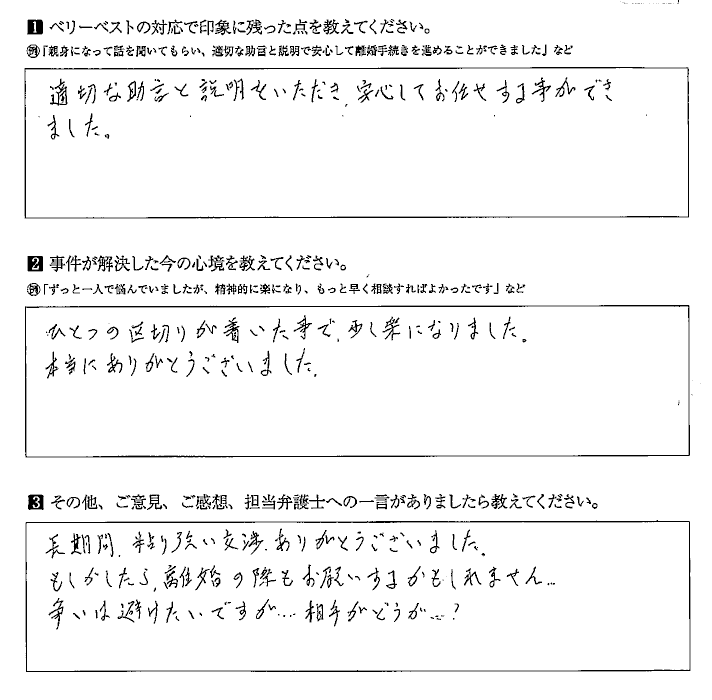 1 ベリーベストの対応で印象に残った点を教えてください。
例「親身になって話を聞いてもらい、適切な助言と説明で安心して離婚手続きを進めることができました」など
適切な助言と説明をいただき、安心してお任せする事ができ
ました。
2 事件が解決した今の心境を教えてください。
例「ずっと一人で悩んでいましたが、精神的に楽になり、もっと早く相談すればよかったです」など
ひとつの区切りが着いた事で、少し楽になりました。
本当にありがとうございました。
3 その他、ご意見、ご感想、担当弁護士への一言がありましたら教えてください。
長期間、粘り強い交渉、ありがとうございました。
もしかしたら、離婚の際もお願いするかもしれません…
争いは避けたいですが…相手がどうか…?